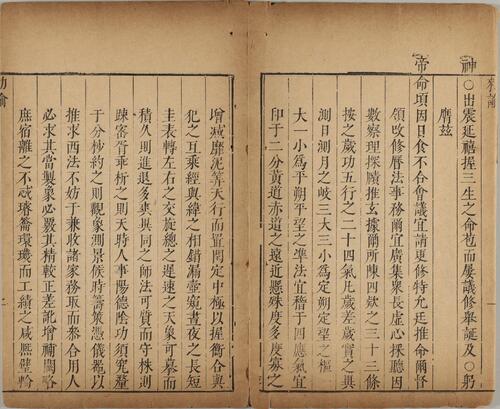 神○出震延禧握三生之命苞而屢議修舉誕及○躬
膺玆
帝命頃因日食不合會議宜請更修特允廷推命爾督
領改修曆法事務爾宜廣集衆長虛心採聽因
數察理探賾推玄據爾所陳四欸之三十三條
按之歲功五行之二十四氣凡歲差歲實之與
測日測月之岐三大三小為定朔定望之樞
大一小為平朔平望之準法宜稽于四應氣宜
印于二分黃道赤道之遠近懸殊度多度寡之
增减靡泥筭天行而置閏定中極以握衡合與
犯之互乘經與緯之相錯漏壺窺晝夜之長短
圭表轉左右之交旋總之遲速之天象可摹而
積久則進退多爽異同之師法可質而守株則
踈客胥乖析之則天時人事陽德陰功須究釐
于分秒約之則觀象測景候時籌策憑儀器以
推求西法不妨于兼收諸家務取而參合用人
必求其當製象必覈其精較正差訛增補闕略
庶宿離之不忒璿籥環璣而工績之咸熙璧輪